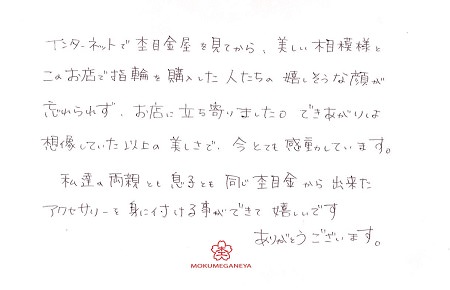 インターネットで杢目金屋を見てから、美しい相模様と
このお店で指輪を購入した人たちの嬉しそうな顔が
忘れられず、お店に立ち寄りました。できあがりは
想像していた以上の美しさで、今とても感動しています。
私達の両親とも息子とも同じ杢目金から出来た
アクセサリーを身に付ける事ができて嬉しいです
ありがとうございます。
MOKUMEGANEYA